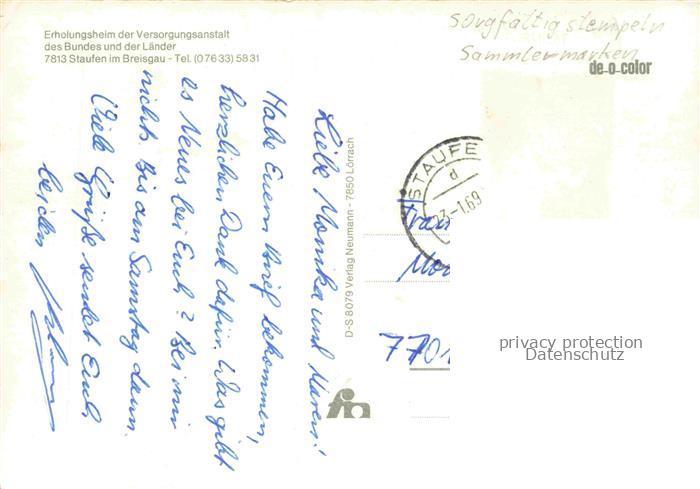 Erholungsheim der Versorgungsanstalt
des Bundes und der Länder
7813 Staufen im Breisgau - Tel. (0 76 33) 58 31
sorgfältig stempeln
Sammlermarken
de-o-color
Liebe Monika und Maren!
Habe Euern Brief bekommen,
herzlichen Dank dafür. Was gibt
es Neues bei Euch? Bei mir
nichts. Bis am Samstag dann.
Viele Grüße sendet Euch
beiden
D-S 8079 Verlag Neumann - 7850 Lörrach
STAUFE
d
23.-1.69
Frau
Mon
7701
fn
privacy protection
Datenschutz